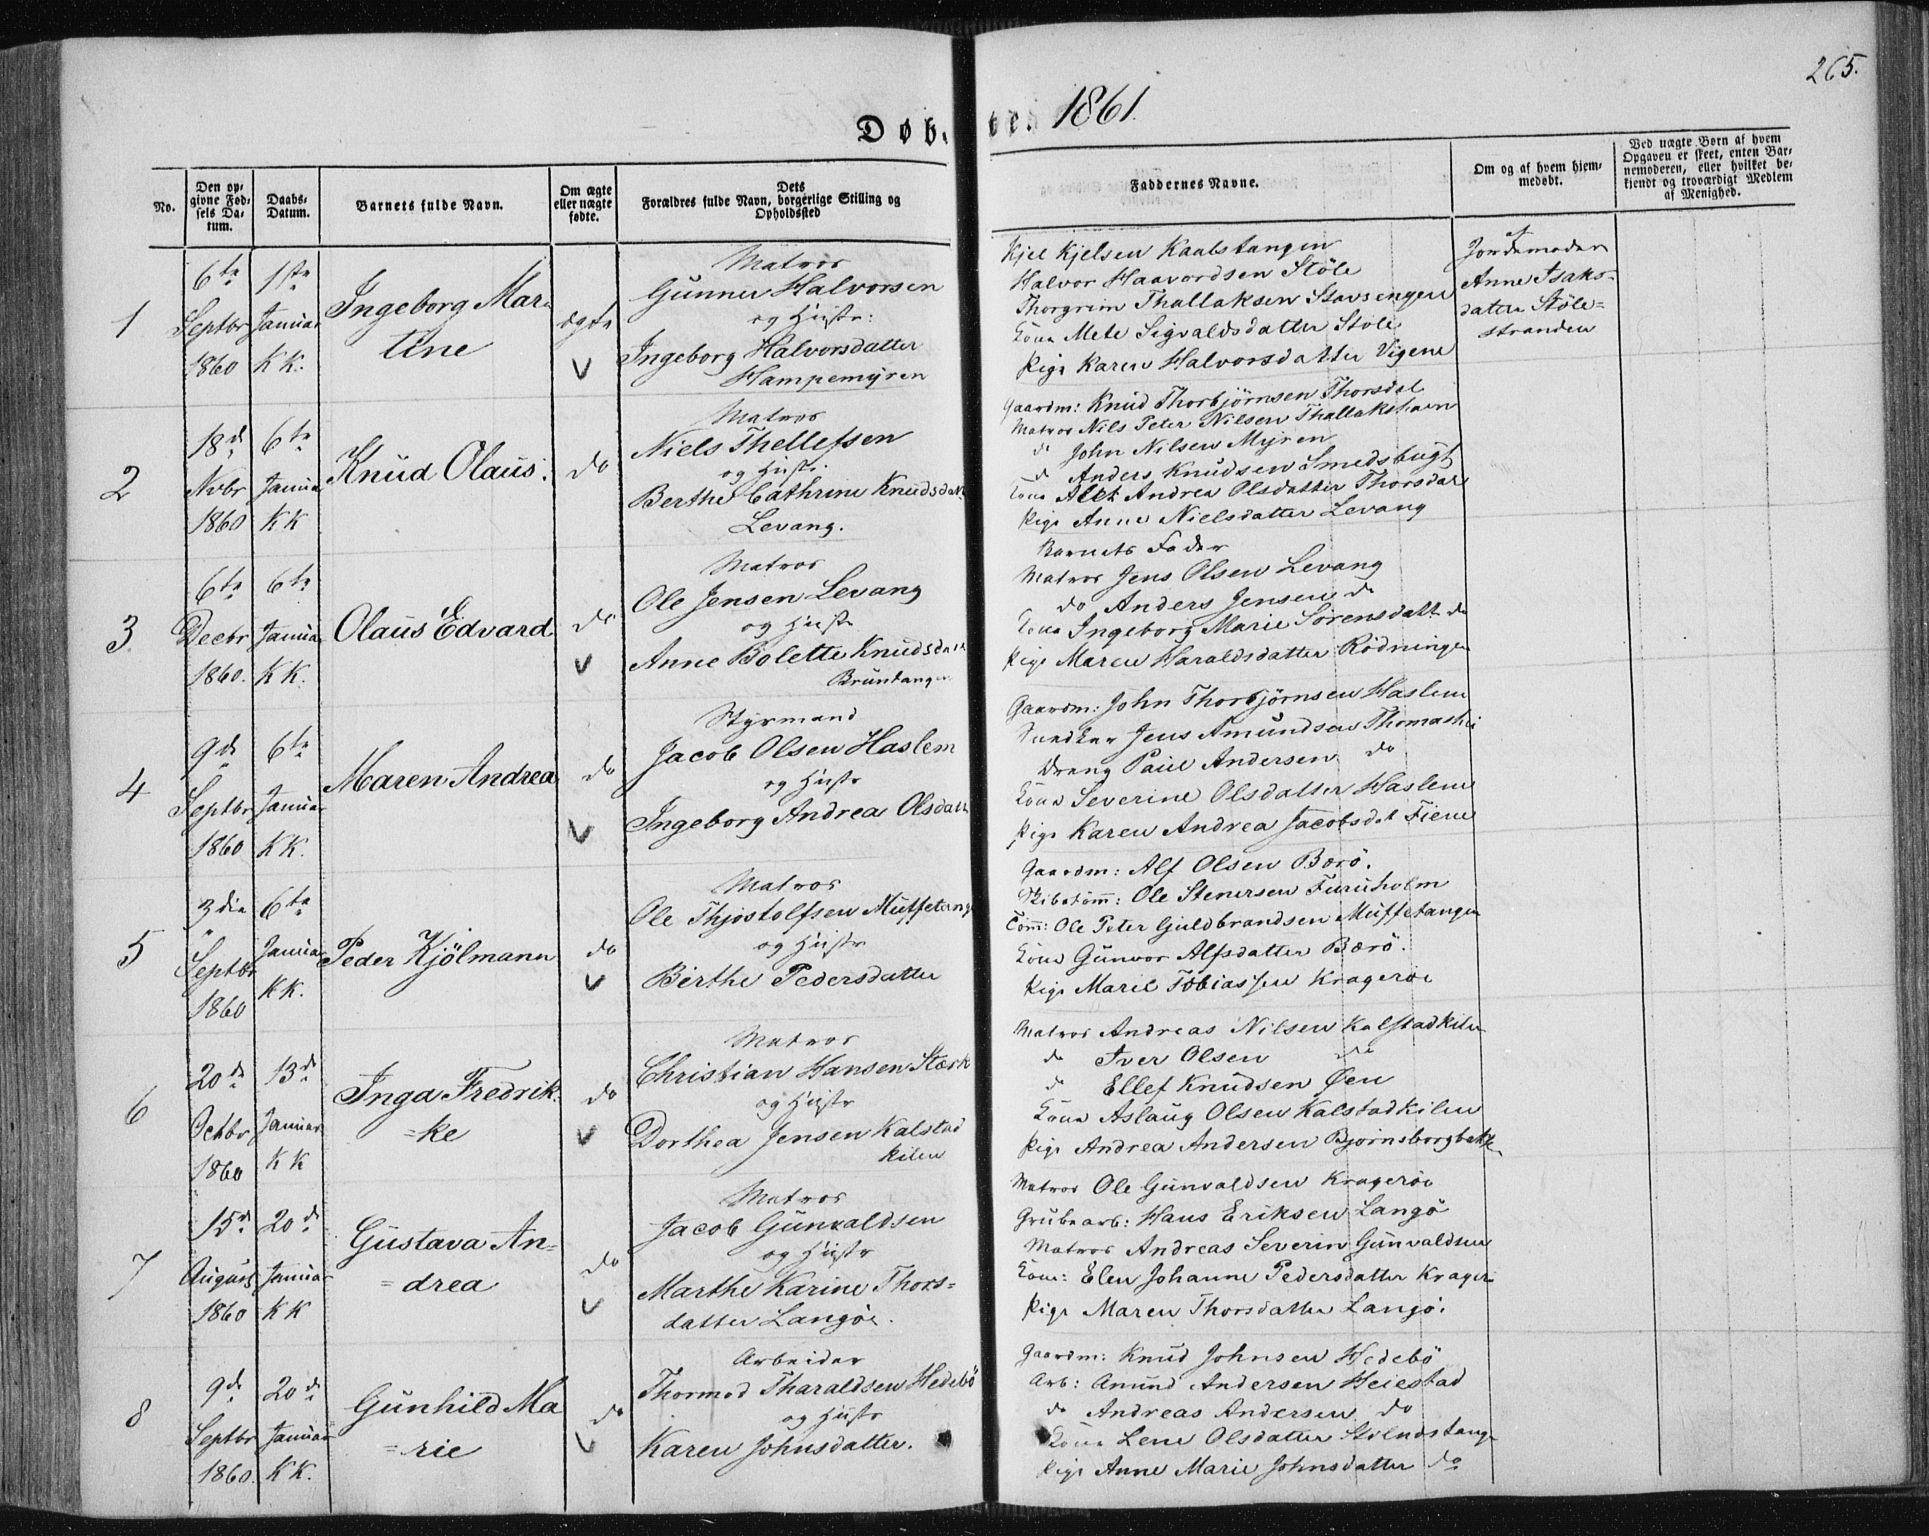 265.
Døb. 1861.
No.
Den op-
givne Fød-
sels Da-
tum.
Daabs-
Datum.
Barnets fulde Navn.
Om ægte
eller uægte
fødte.
Dets
Forældres fulde Navn, borgerlige Stilling og
Opholdssted
Faddernes Navne.
Om og af hvem hjem-
medøbt.
Ved uægte Børn af hvem
Opgaven er skeet, enten Bar-
nemoderen, eller hvilket be-
kjendt og troværdigt Medlem
af Menighed.
1
6te
Septbr
1860
1ste
Januar
KK.
Ingeborg Mar-
tine
ægte
Matros
Gunner Halvorsen
og Hustr:
Ingeborg Halvorsdatter
Hampemyren
Kjel Kjelsen Kaalstangen
Halvor Haavordsen Støle
Thorgrim Thallaksen Stavsengen
Kona Mete Sigvaldsdatter Støle
Pige Karen Halvorsdatter Vigene
af
Jordemoder
Anne Isaks-
datter Støle=
stranden
2
18d
Nvbr
1860
6te
Januar
KK
Knud Olaus.
do
Matros
Niels Thellefsen
og Hustr.
Berthe Cathrine Knudsdatt
Levang.
Gaardm: Knud Thorbjørnsen Thorsdal
Matros Nils Peter Nilsen Thallakshavn
d John Nilsen Myren
d Anders Knudsen Smedsbugt
Kona Alet Andrea Olsdatter Thorsdal
Pige Anne Nielsdatter Levang
3
6te
Decbr
1860.
6te
Januar
KK.
Olaus Edvard
do
Matros
Ole Jensen Levang
og Hustr
Anne Bolette Knudsdatt
Bruntangen
Barnets Fader
Matros Jens Olsen Levang
do Anders Jensen do
Kona Ingeborg Marie Sørensdatt do
Pige Maren Haraldsdatter Rødningen
4
9de
Septbr
1860
6te
Januar
KK.
Maren Andrea
do
Styrmand
Jacob Olsen Haslem
og Hustr
Ingeborg Andrea Olsdatt
Gaardm: John Thorbjørnsen Haslem
Snedker Jens Amundsen Thomashei
Dreng Paul Andersen do
Kona Severine Olsdatter Haslem
Pige Karen Andrea Jacobsdat Fiene
5
3die
Septbr
1860
6te
Januar
KK.
Peder Kjølmann
do
Matros
Ole Thjostolfsen Muffetang
og Hustr
Birthe Pedersdatter
Gaardm: Alf Olsen Bærø.
Skibstømm: Ole Stenersen Furuholm
Tømm: Ole Peter Guldbrandsen Muffetangen
Kona Gunvor Alfsdatter Bærø.
Pige Marie Tobiassen Kragerøe
6
20de
Octbr
1860
13de
Januar
KK
Inga Fredrik-
=ke
do
Matros
Christian Hansen Stærk
og Hustr
Dorthea Jensen Kalstad
kilen
Matros Andreas Nilsen Kalstadkilen
d Iver Olsen do
d Ellef Knudsen Øen
Kona Aslaug Olsen Kalstadkilen
Pige Andrea Andersen Bjørnsborgbakken
7
15d
August
1860
20de
Januar
KK
Gustava An=
=drea
do
Matros
Jacob Gunvaldsen
og Hustr
Marthe Karine Thors=
datter Langøe.
Matros Ole Gunvaldsen Kragerøe
Grubearb: Hans Eriksen Langø
Matros Andreas Severin Gunvaldsen
Kone: Elen Johanne Pedersdatter Kragerø
Pige Maren Thorsdatter Langø.
8
9de
Septbr
1860.
20de
Januar
KK.
Gunhild Ma
=rie
do
Arbeider
Thormod Tharaldsen Hedebø
og Hustr
Karen Johnsdatter.
Gaardm: Knud Johnsen Hedebø
Arb: Amund Andersen Heiestad
do Andreas Andersen do
Kona Lene Olsdatter Stølndstang
Pige Anne Marie Johnsdatter do